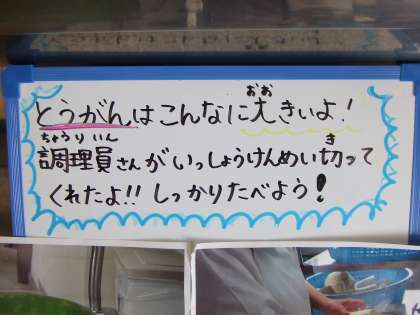 とうがんはこんなに大きいよ！
調理員さんがいっしょうけんめい切って
くれたよ!! しっかりたべよう！